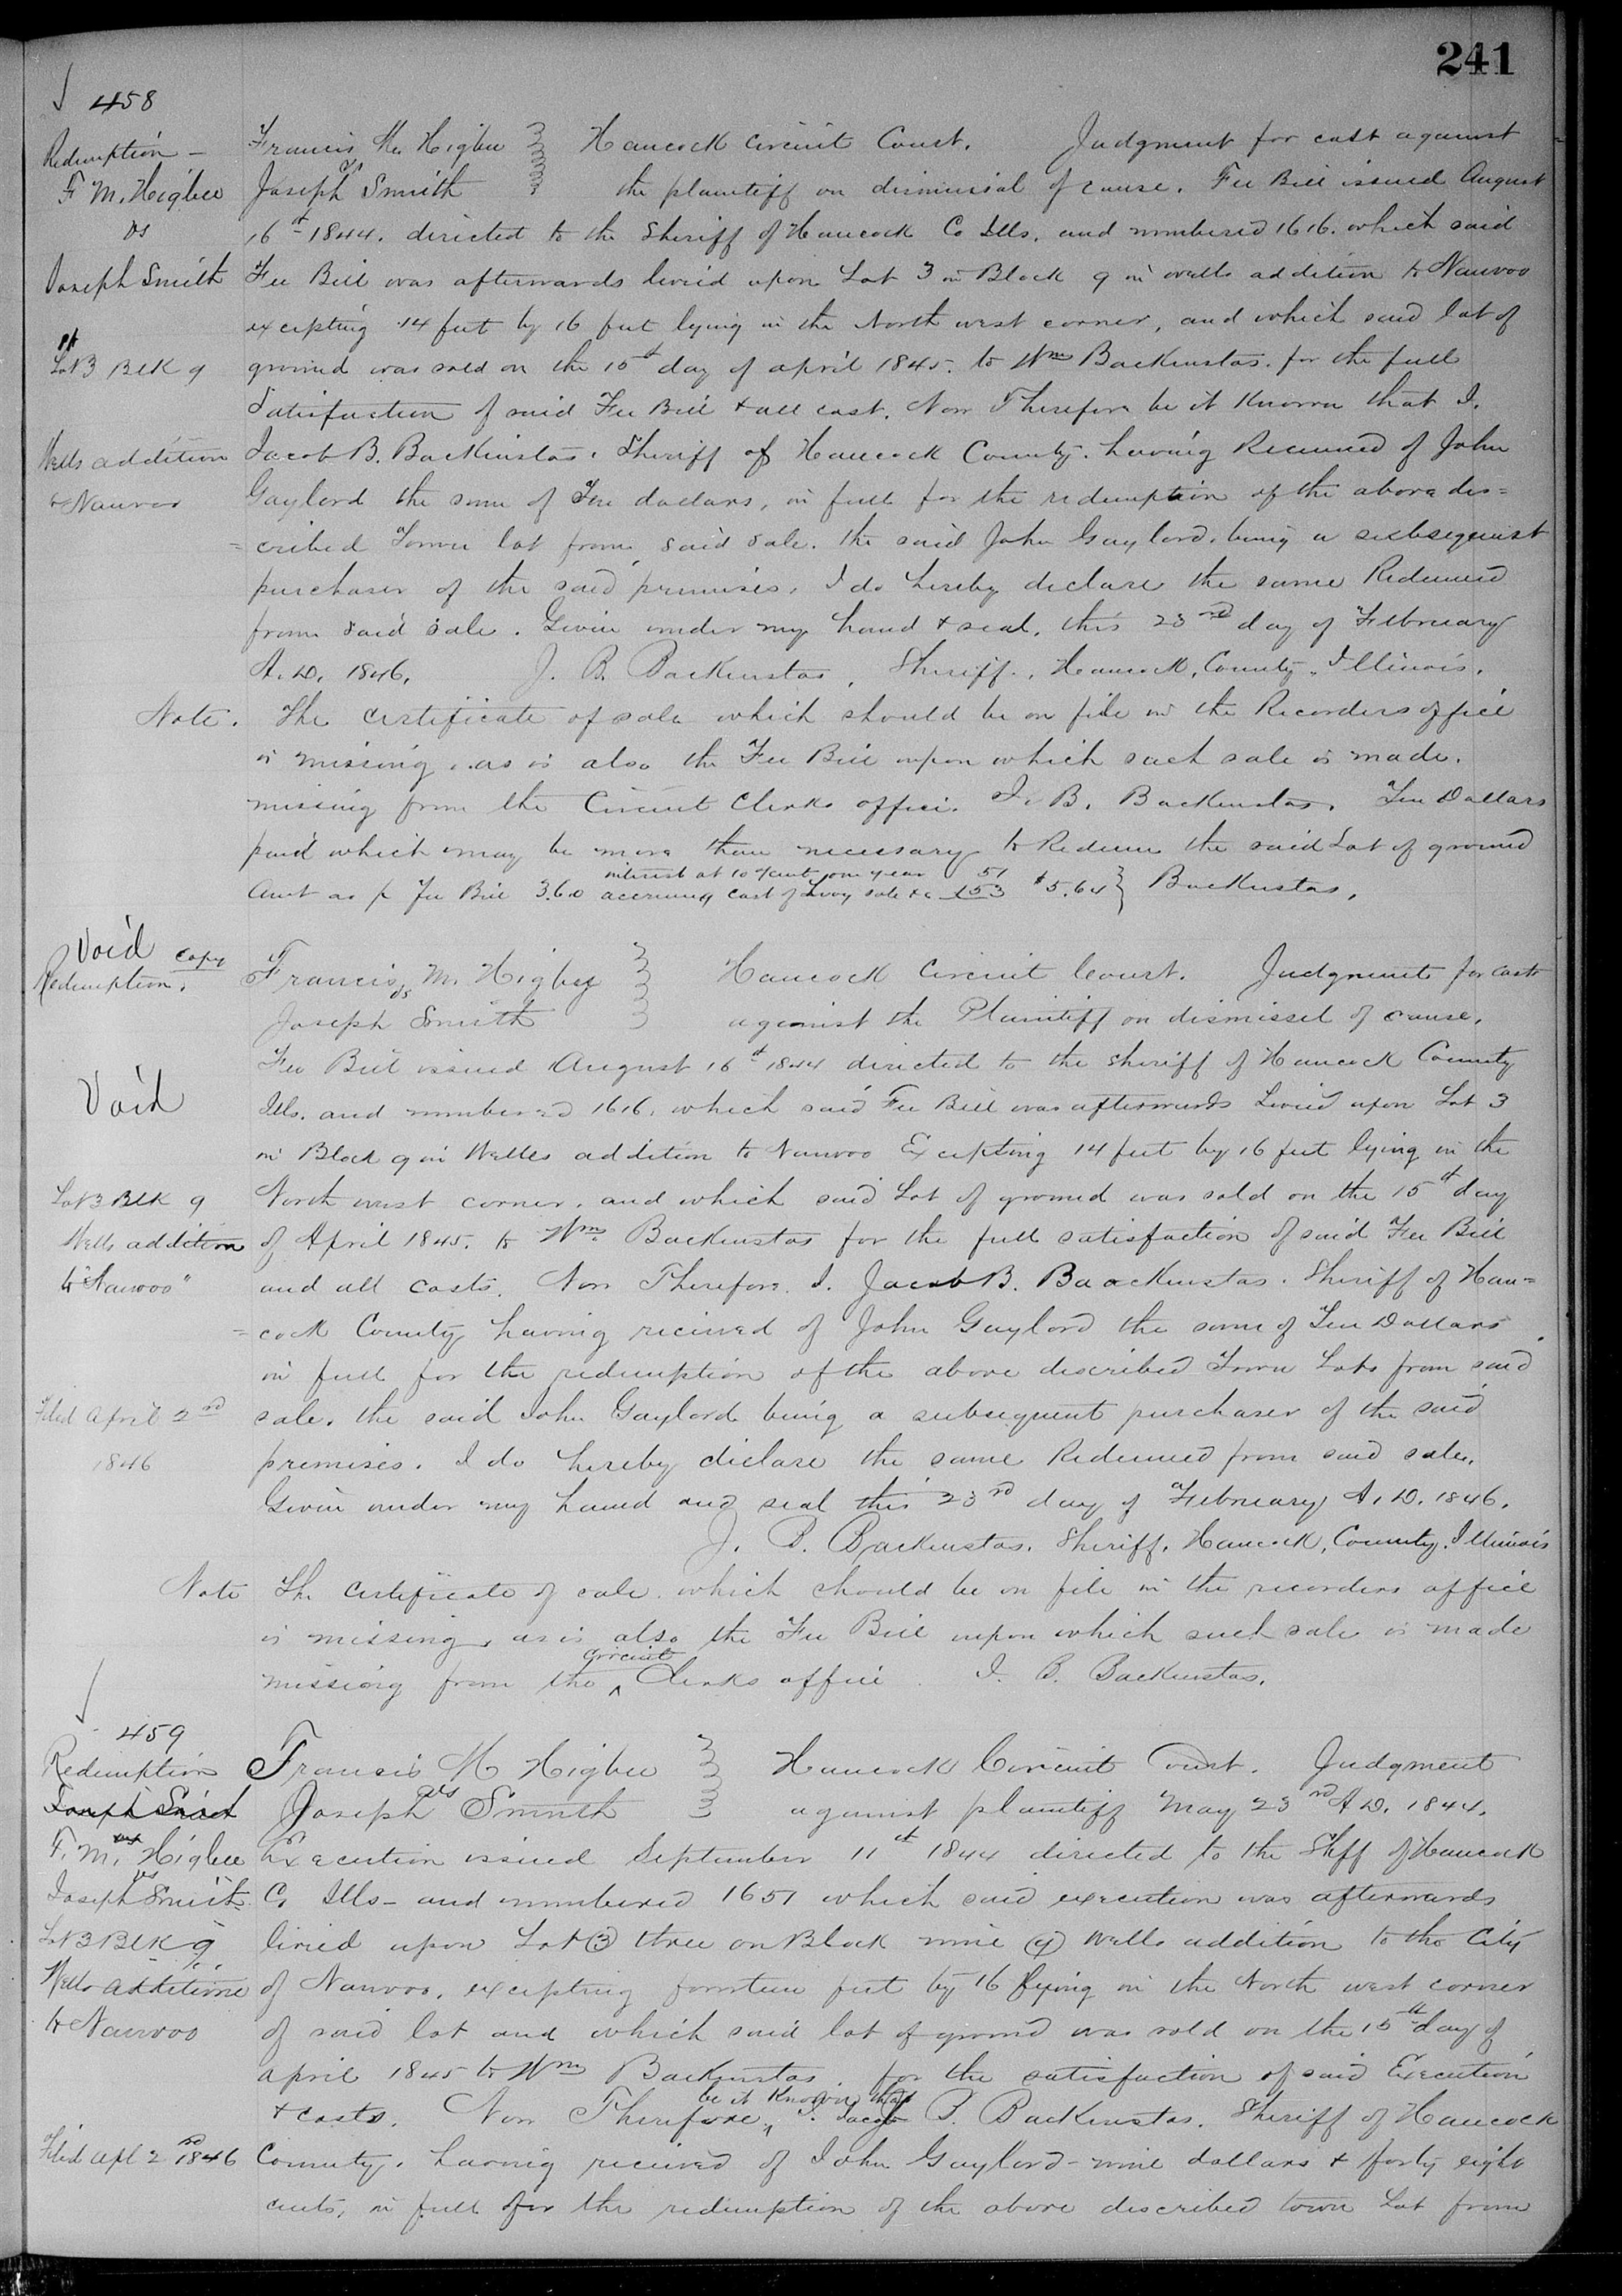 241
458
Redemption –
F M. Higbee
vs
Joseph Smith
pt
Lot 3 Blk 9
Wells addition
to Nauvoo
Francis M. Higbee } Hancock Circuit Court. Judgment for cost against
vs
Joseph Smith } the plaintiff on dismissial of cause. Fee Bill issued August
16th 1844. directed to the Sheriff of Hancock Co Ills. and numbered 1616. which said
Fee Bill was afterwards levied upon Lot 3 in Block 9 in wells addition to Nauvoo
excepting 14 feet by 16 feet lying in the North west corner, and which said lot of
ground was sold on the 15th day of april 1845. to Wm Backenstos. for the full
Satisfaction of said Fee Bill & all cost. Now Therefore be it Known that I.
Jacob B. Backenstos. Sheriff of Hancock County. having Received of John
Gaylord the sum of Ten dollars, in full for the redemption of the above des=
=cribed Town lot from said sale. the said John Gaylord. being a subsequent
purchaser of the said premises. I do hereby declare the same Redeemed
from said sale. Given under my hand & seal, this 23rd day of February
A.D. 1846. J. B. Backenstos, Sheriff., Hancock, County, Illinois.
Note. The certificate of sale which should be on file in the Recorders office
is missing. as is also the Fee Bill upon which such sale is made.
missing from the Circuit Clerks office. J. B. Backenstos. Ten Dollars
paid which may be more than necessary to Redeem the said Lot of ground
interest at 10 %cent one year 51
Amt as p Fee Bill 3.60 accruing cost of Levy sale &c 153 $5.64 } Backenstos.
Void copy
Redemption.
Void
Lot 3 Blk 9
Wells addition
to "Nauvoo"
Filed April 2nd
1846
Francis M. Higby } Hancock Circuit Court. Judgment for costs
vs
Joseph Smith } against the Plaintiff on dismissel of cause.
Fee Bill issued August 16th 1844 directed to the sheriff of Hancock County
Ills. and numbered 1616. which said Fee Bill was afterwards Levied upon Lot 3
in Block 9 in Wells addition to Nauvoo Excepting 14 feet by 16 feet lying in the
North west corner. and which said Lot of ground was sold on the 15th day
of April 1845. to Wm. Backenstos for the full satisfaction of said Fee Bill
and all costs. Now Therefore. I. Jacob B. Baackenstos. Sheriff of Han=
=cock County having received of John Gaylord the sum of Ten Dollars
in full for the redemption of the above described Town Lots from said
sale. the said John Gaylord being a subsequent purchaser of the said
premises. I do hereby declare the same Redeemed from said sale.
Given under my hand and seal this 23rd day of February A.D. 1846.
J. B. Backenstos. Sheriff. Hancock, County. Illinois
Note The certificate of sale which should be on file in the recorders office
is missing. as is also the Fee Bill upon which such sale is made
missing from the ^ circuit Clerks office J. B. Backenstos.
459
Redemption
Joseph Smith
F. M. Higbee
vs
Joseph Smith
Lot 3 Blk 9
Wells addition
to Nauvoo
Filed apl 2nd 1846
Francis M Higbee } Hancock Circuit Court. Judgment
vs
Joseph Smith } against plaintiff May 23rd A D. 1844.
Execution issued September 11th 1844 directed to the Shff of Hancock
Co Ills – and numbered 1651 which said execution was afterwards
levied upon Lot (3) three on Block nine (9) Wells addition to the City
of Nauvoo. excepting fourteen feet by 16 lying in the North west corner
of said lot and which said lot of ground was sold on the 15th day of
april 1845 to Wm Backenstos. for the satisfaction of said Execution
& costs. Now Therefore, ^ be it Known that I. Jacob B. Backenstos. Sheriff of Hancock
County. having received of John Gaylord – nine dollars & forty eight
cents, in full for the redemption of the above described town Lot from